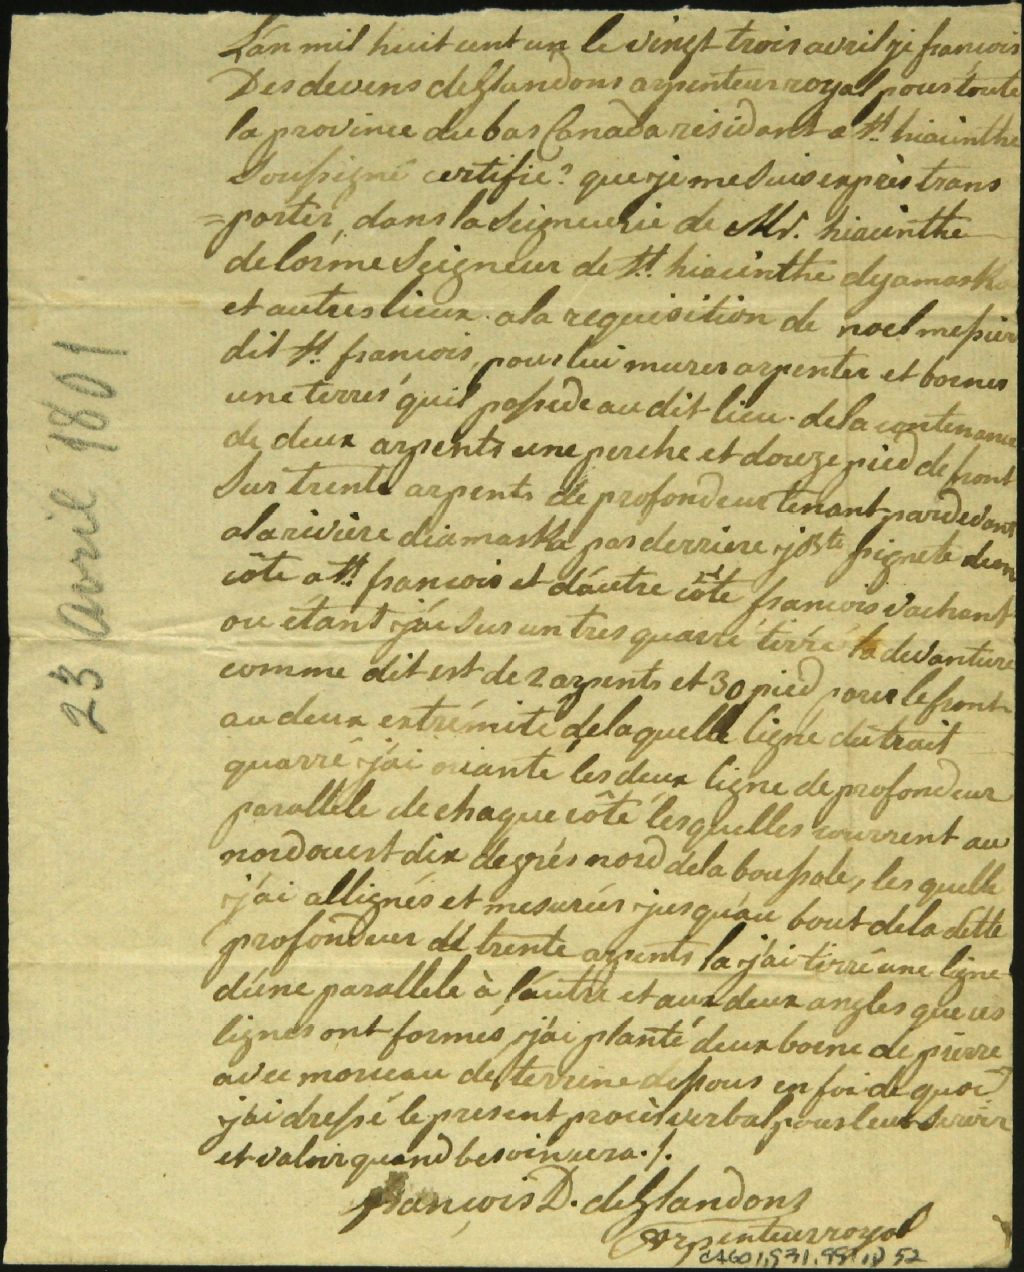 L'an mil huit cent un le vingt trois avril je françois
Desdevens deGlandons arpenteur royal pour toute
la province du bas Canada residant a St. hiacinthe
Soussigné certifie? que je me suis exprès trans
=porter, dans la Seigneurie de Mr. hiacinthe
delorme Seigneur de St. hiacinthe dyamaska
et autres lieux. a la requisition de noel messier
dit St. françois, pour lui murer arpenter et borner
une terres qu'il possede au dit lieu. de la contenance
de deux arpents une perche et douze pied de front
Sur trente arpents de profondeur tenant par devant
a la rivière diamaska par derriere jBte d'un
côte a St. francois et d'autre côté francois vachant
ou étant j'ai sur un tres quarré tirré la devanture
comme dit est de 2 arpents et 30 pied pour le front
au deux extrémité de laquelle ligne du trait
quarré j'ai oriante les deux ligne de profondeur
parallele de chaque côté lesquelles courrent au
nord ouest dix degrés nord de la boussole, lesquelle
j'ai allignés et mesurées jusqu'au bout de la dette
profondeur de trente arpents la j'ai tirré une ligne
d'une parallele à l'autre et aux deux angles que ces
lignes ont formés, j'ai planté deux borne de pierre
avec morceau de terrine dessous en foi de quoi
j'ai dressé le present procès verbal pour leur servir
et valoir quand besoin sera ./.
françois D. deGlandons
Arpenteur royal
23 avril 1801
52